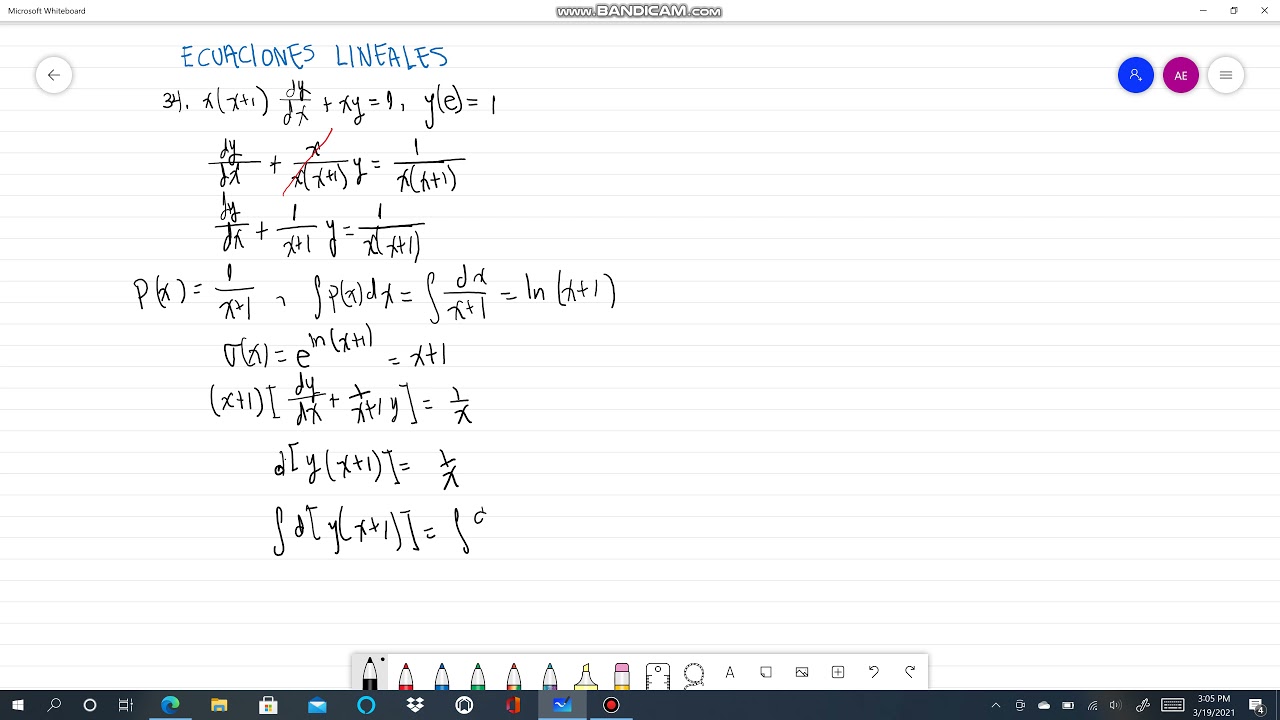 Microsoft Whiteboard
www.BANDICAM.com
ECUACIONES LINEALES
34. x(x+1) dy/dx + xy = 1, y(e) = 1
dy/dx + x/x(x+1) y = 1/x(x+1)
dy/dx + 1/x+1 y = 1/x(x+1)
P(x) = 1/x+1 , ∫p(x)dx = ∫dx/x+1 = ln(x+1)
σ(x) = e^ln(x+1) = x+1
(x+1)[dy/dx + 1/x+1 y] = 1/x
d[y(x+1)] = 1/x
∫d[y(x+1)] = ∫
AE
A
3:05 PM
3/19/2021
4